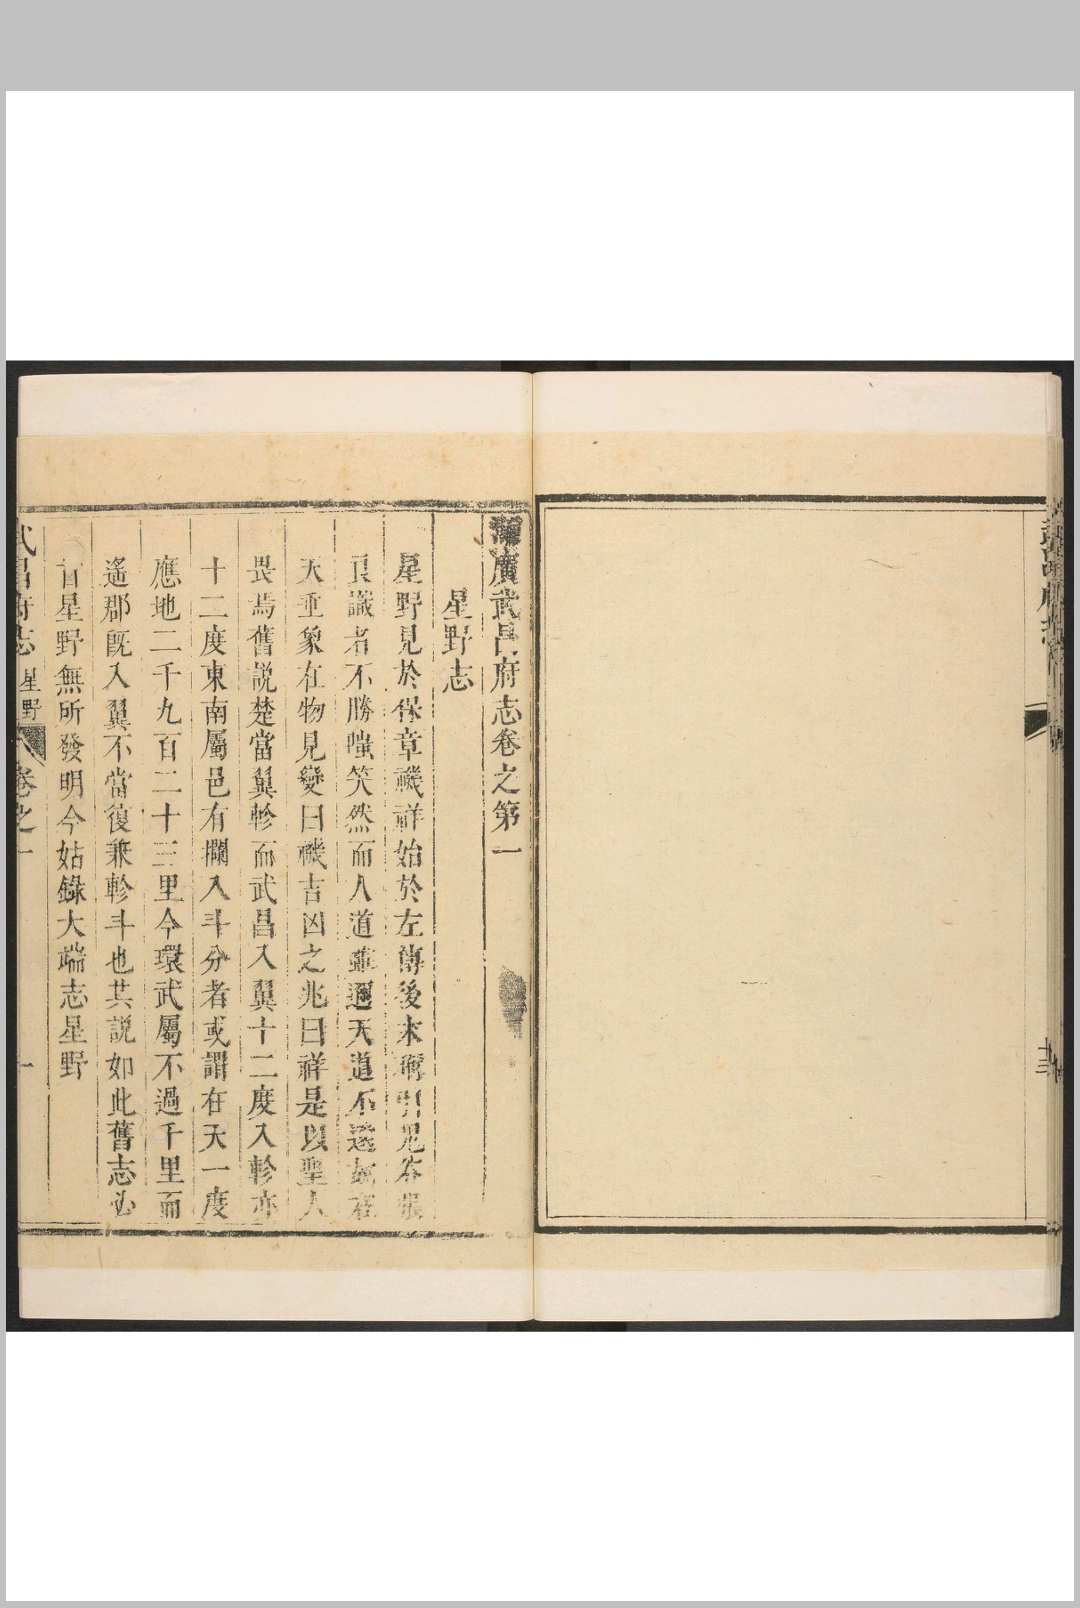 湖廣武昌府志卷之第一
星野志
星野見於保章禨祥始於左傳後末
識者不勝嗤笑然而人道邇天道不
天垂象在物見變曰禨吉凶之兆曰祥是以聖人
畏焉舊説楚當翼軫而武昌入翼十二度入軫亦
十二度東南屬邑有攔入斗分者或謂在天一度
應地二千九百二十三里今環武屬不過千里而
遙郡既入翼不當復兼軫斗也其説如此舊志必
首星野無所發明今姑錄大端志星野
武昌府志 星野 卷之一 一